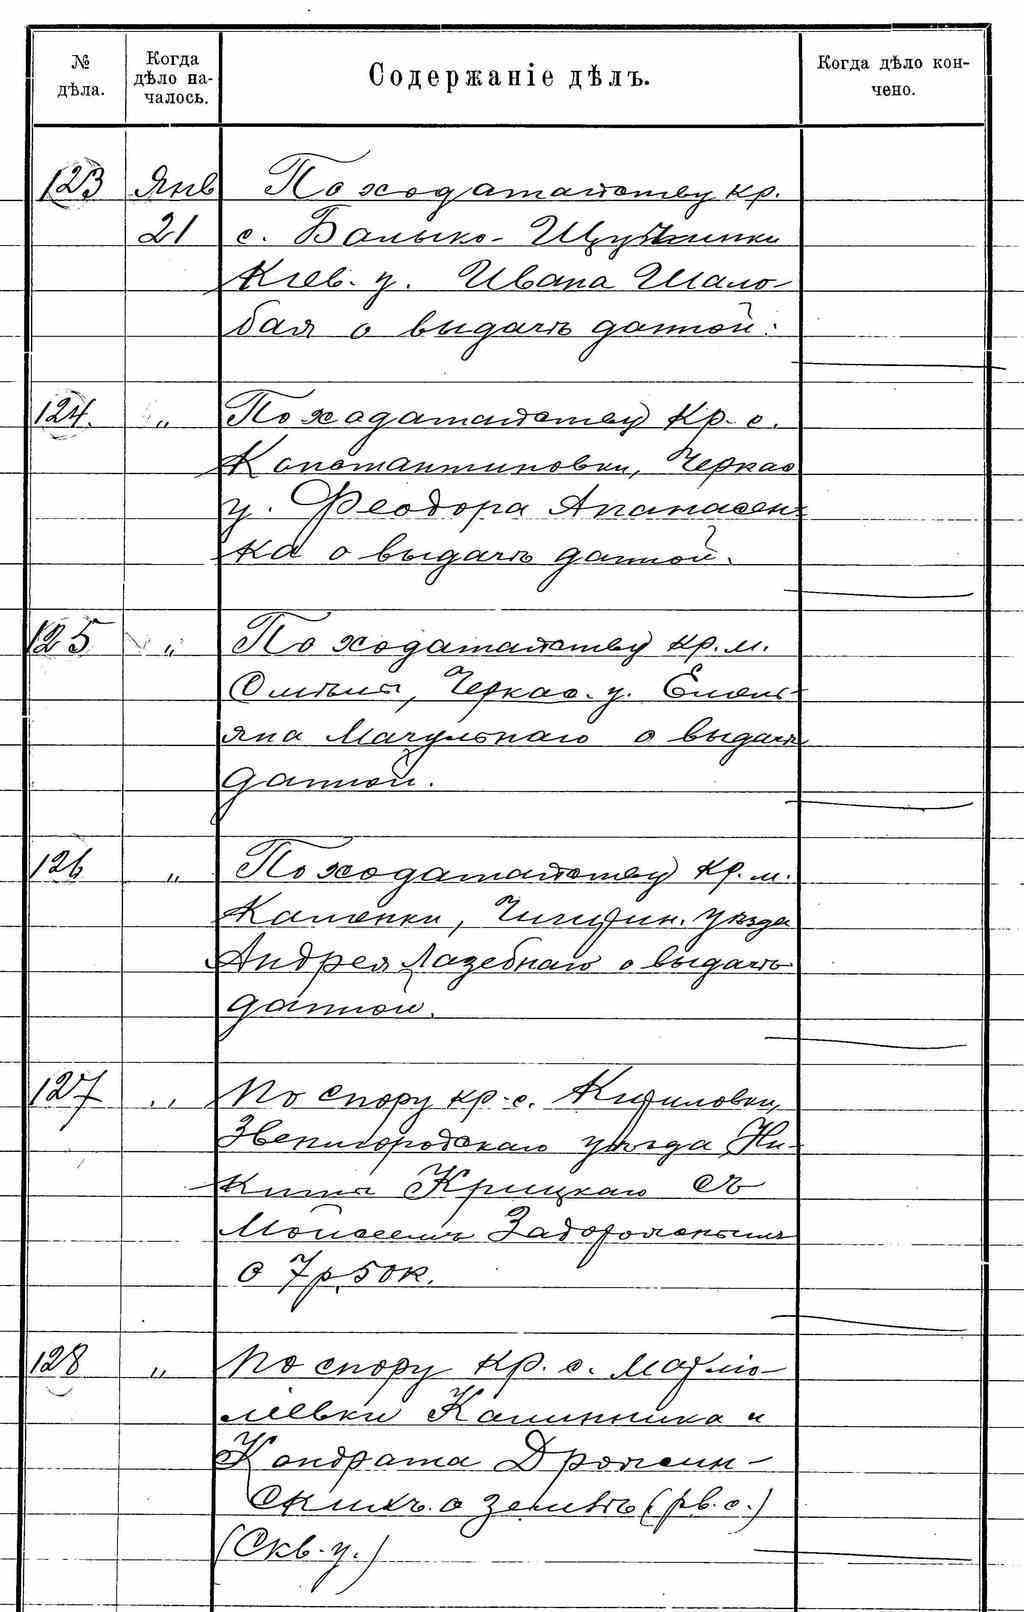 № дѣла.
Когда дѣло на-
чалось.
Содержаніе дѣлъ.
Когда дѣло кон-
чено.
123 Янв По ходатайству кр.
21 с. Балыко-Щучинки
Кіев. у. Ивана Шало-
бая о выдачѣ данной.
124. „ По ходатайству кр. с.
Константиновки, Черкас
у. Феодора Апанасен-
ка о выдачѣ данной.
125 „ По ходатайству кр. м.
Смѣлы, Черкас. у. Емель-
яна Мачульнаго о выдачѣ
данной.
126 „ По ходатайству кр. м.
Каменки, Чигирин. уѣзда
Андрея Лазебнаго о выдачѣ
данной.
127 „ По спору кр. с. Кириловки,
Звенигородскаго уѣзда Ни-
киты Крицкаго съ
Моисеемъ Задорожнымъ
о 7 р. 50 к.
128 „ По спору кр. с.
Калинника и
Кондрата Дрожин-
скихъ о землѣ (рв. с.)
(Скв. у.)